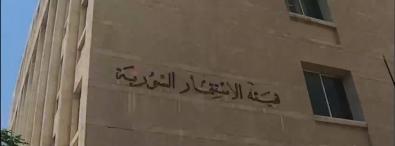 هيئة الاستثمار السورية